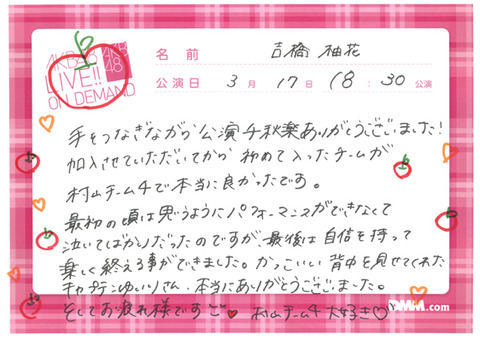 AKB48
AKB48
LIVE!!
ON DEMAND
名前 吉橋 柚花
公演日 3月17日 18:30公演
手をつなぎながら公演千秋楽ありがとうございました!
加入させていただいてから初めて入ったチームが
村山チーム4で本当に良かったです。
最初の頃は思うようにパフォーマンスができなくて
泣いてばかりだったのですが、最後は自信を持って
楽しく終える事ができました。かっこいい背中を見せてくれた
キャプテンゆいりさん、本当にありがとうございました。
そしてお疲れ様です♡村山チーム4大好き♡
DMM.com